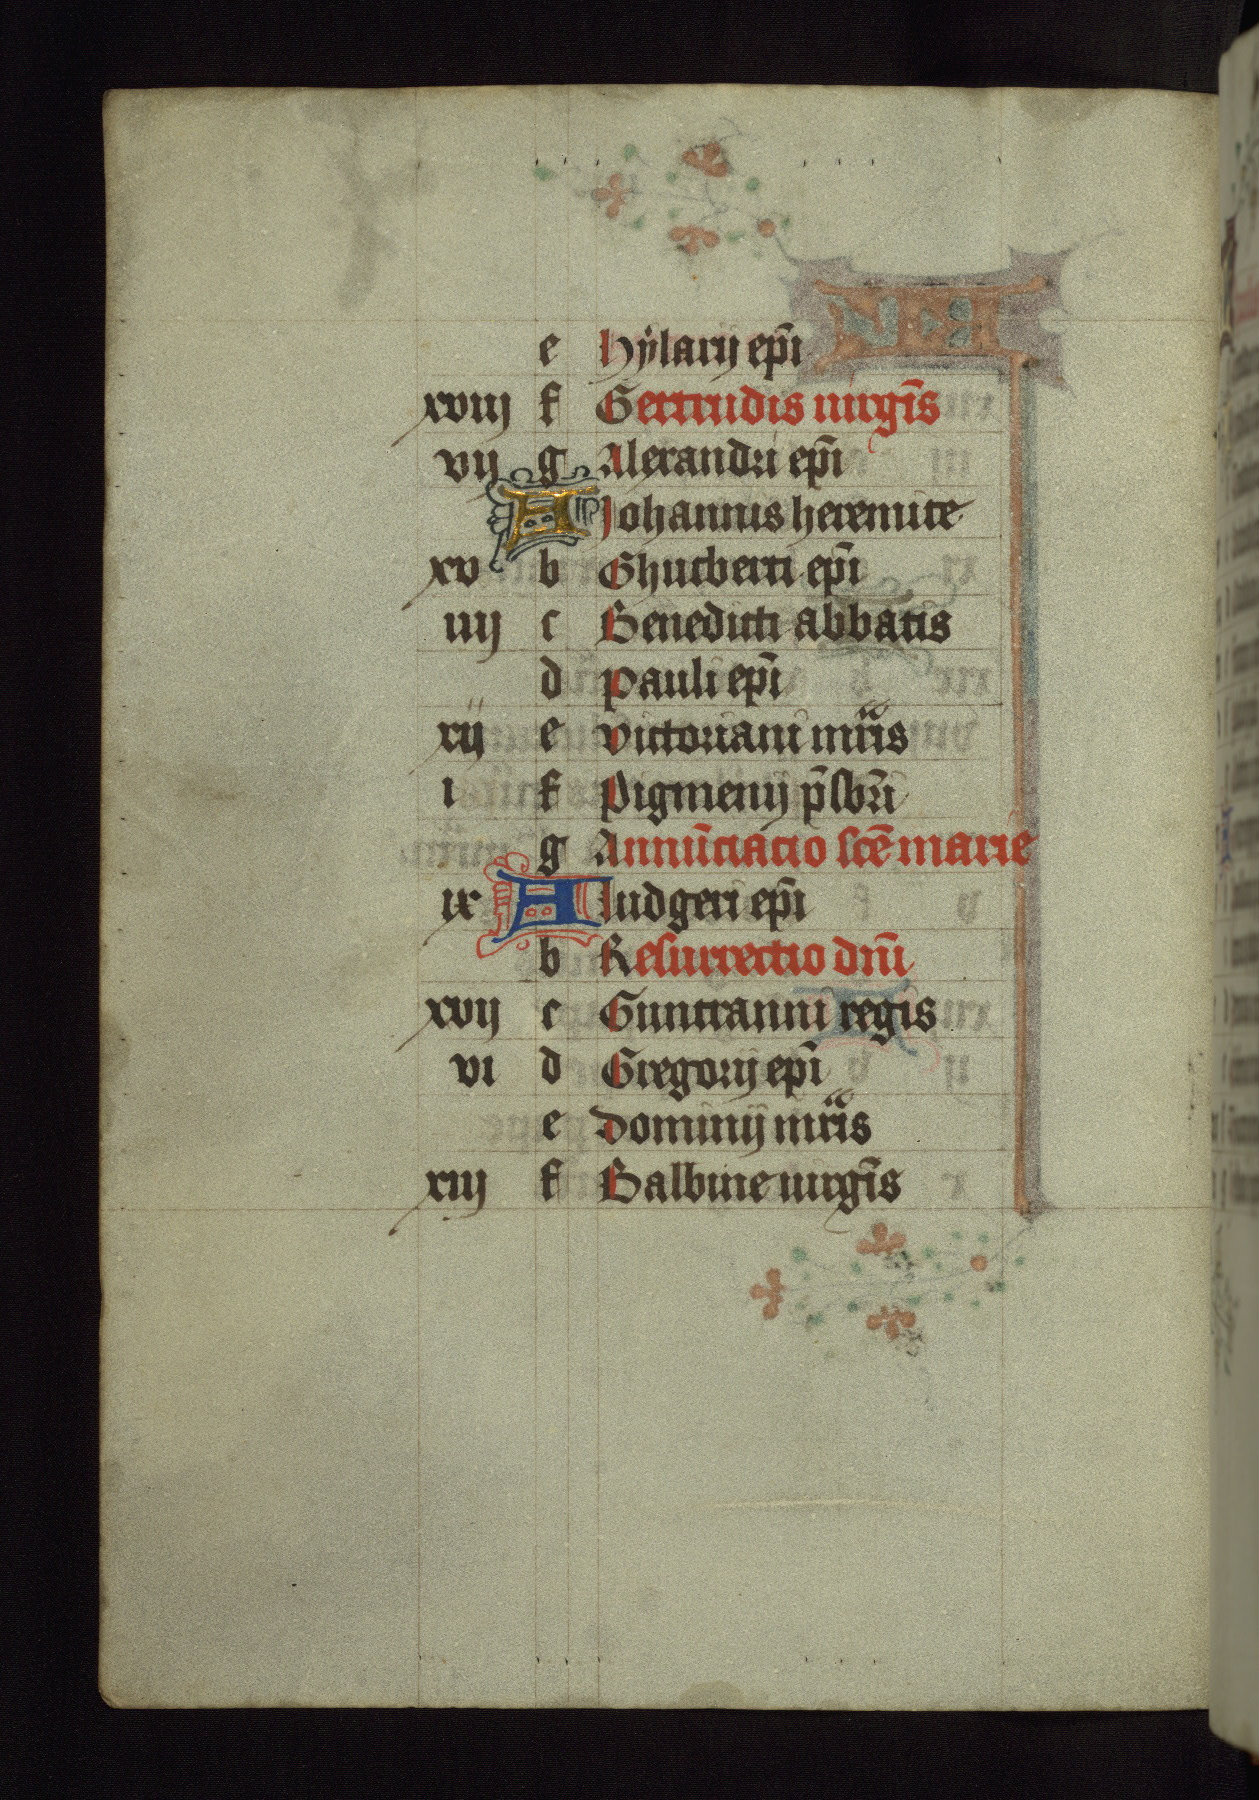 e Hÿlarij ep̄i
xviij f Gertrudis uirgīs
vij g Alexandri ep̄i
A Johannis heremite
xv b Ghutberti ep̄i
iiij c Benedicti abbatis
d pauli ep̄i
xij e victoriani mr̄is
i f Pigmenij p̄sbr̄i
g Annūciacio sc̄e marie
ix A ludgeri ep̄i
b Resurrectio dn̄i
xvij c Guntranni regis
vi d Gregorij ep̄i
e dominij mr̄is
xiij f Balbine uirgīs